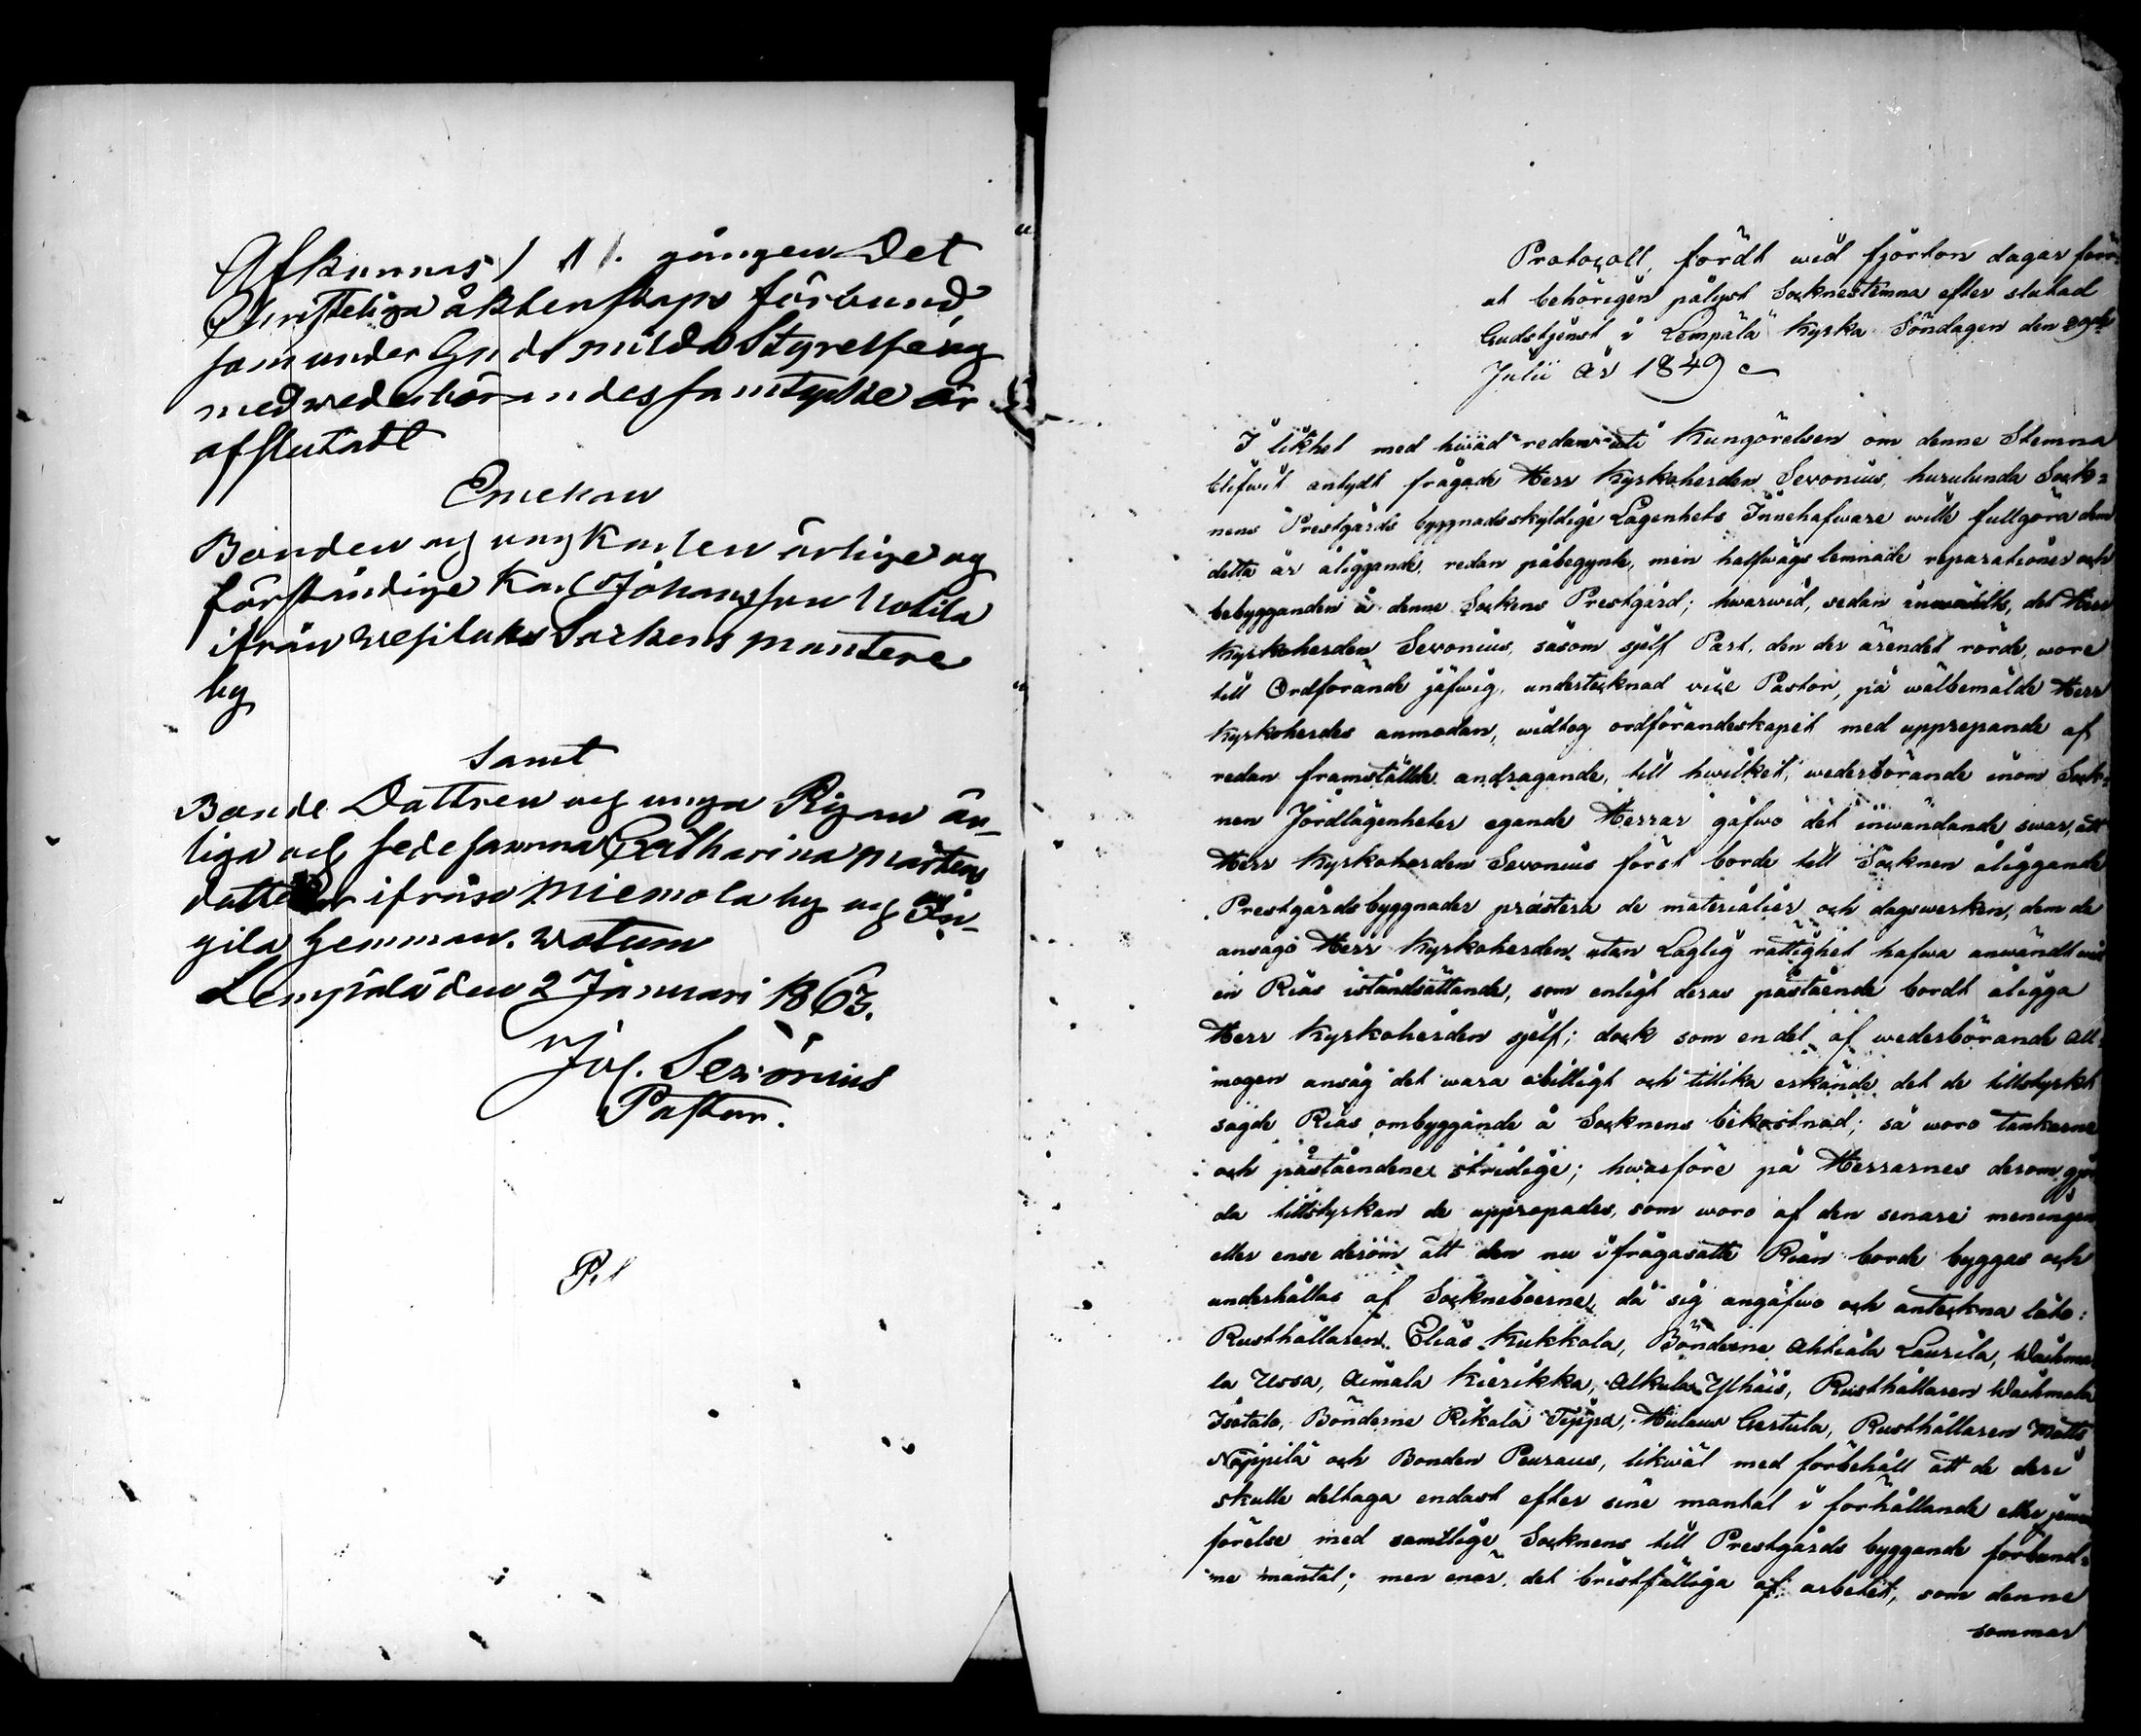 Afkunnas 1 gången Det
Christeliga äktenskaps förbund,
som under Guds milda Styrelse og
med wederbörandes samtycke är
afslutadt
Emellan
Bonden og ungkarlen ärlige og
förståndige Karl Johansson Uotila
ifrån Wesilaks Sockens Mantere
by
Samt
Bonde Dottren og unga Pigan är-
liga och sedesamma Catharina Mårtens
dotter ifrån Miemola by og
gila hemman. Wotum
Lempälä den 2 Januari 1863.
Jos. Seronius
Pastor.
Protocoll, fördt wid fjorton dagar för-
ut behörigen pålyst Socknestemna efter slutad
Gudstjenst i Lempälä Kyrka Söndagen den
Julii År 1849
I likhet med hwad redan uti Kungörelsen om denne Stemna
blifwit antydt frågade Herr Kyrkoherden Seronius, hurulunda Sock-
nens Prestgårds byggnadsskyldige Lägenhets Innehafware wille fullgöra dem
detta år åliggande, redan påbegynte, men halfwägs lemnade reparationer och
bebygganden å denne Sockens Prestgård; hwarwid, sedan det Herr
Kyrkoherden Seronius, såsom sjelf Part, den der ärendet rörde, wore
till Ordförande jäfwig, undertecknad vice Pastor, på wälbemälde Herr
Kyrkoherdes anmodan, widtog ordförandeskapet med upprepande af
redan framställde andragande, till hwilket, wederbörande inom Sock-
nen Jordlägenheter egande Herrar gåfwo det inwändande swar, att
Herr Kyrkoherden Seronius först borde till Socknen åliggande
Prestgårdsbyggnader prestera de materialier och dagswerken, dem de
ansågo Herr Kyrkoherden utan Laglig rättighet hafwa användt wid
en Rias iståndsättande, som enligt deras påstående bordt åligga
Herr Kyrkoherden sjelf; dock som en del af wederbörande All-
mogen ansåg det wara obilligt och tillika erkände det de tillstyrkt
sagde Rias ombyggande å Socknens bekostnad; så woro tankarne
och påståendene stridige; hwarföre på Herrarnes derom gjor-
da tillstyrkan de upprepades, som woro af den senare meningen
eller ense derom att den nu ifrågasatte Rian borde byggas och
underhållas af Sockneboerne, då sig angåfwo och anteckna läto:
Rusthållaren Elias Kukkola, Bönderne Ahtiala Laurila, Waihma-
la Ussa, Aimala Kierikka, Alkula Ylhäis, Rusthållaren Waihmala
Isotalo, Bönderne Rikala Teppa, Hulaus Gertula, Rusthållaren Matts
Näppilä och Bonden Peuraus, likwäl med förbehåll att de deri
skulle deltaga endast efter sine mantal i förhållande eller jem-
förelse med samtlige Socknens till Prestgårds byggande förbund-
ne mantal; men enär det bristfälliga af arbetet, som denne
sommar